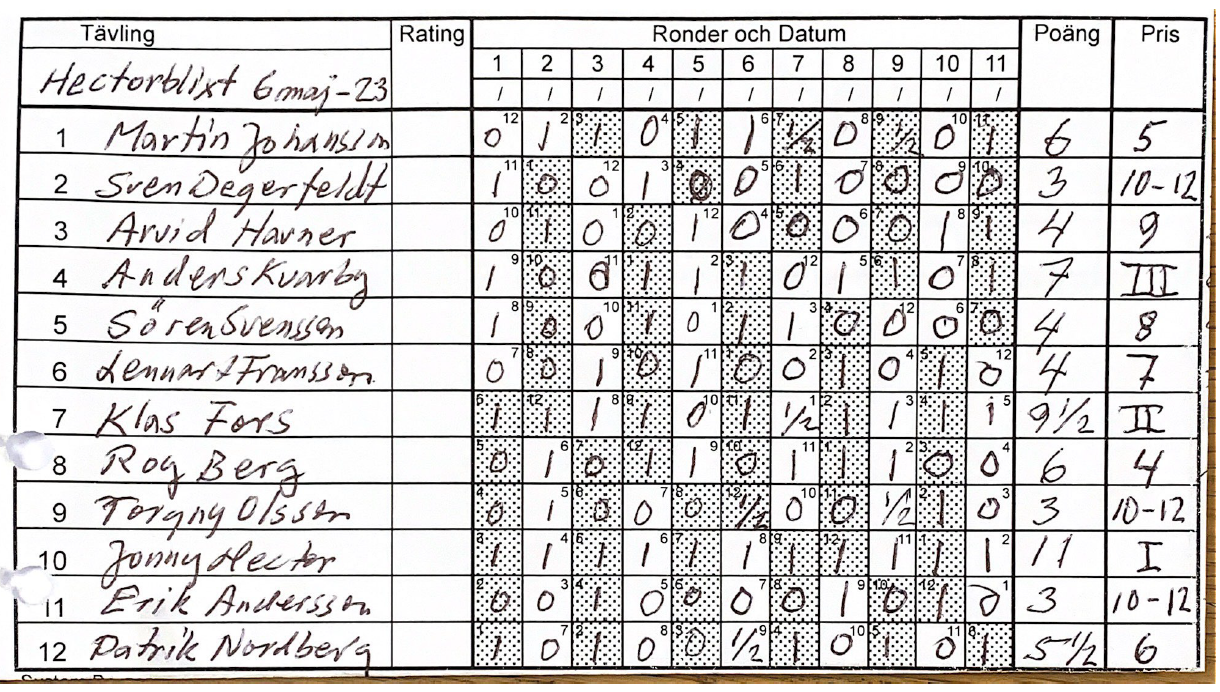 Tävling Rating Ronder och Datum Poäng Pris
1 2 3 4 5 6 7 8 9 10 11
Hectorblixt 6 maj-23 / / / / / / / / / / /
1 Martin Johansson 0 12 1 2 1 3 0 4 1 5 1 6 1/2 7 0 8 1/2 9 0 10 1 11 6 5
2 Sven Degerfeldt 1 11 0 1 0 12 1 3 0 4 0 5 1 6 0 7 0 8 0 9 0 10 3 10-12
3 Arvid Havner 0 10 1 11 0 1 0 2 1 12 0 4 0 5 0 6 0 7 1 8 1 9 4 9
4 Anders Kvarby 1 9 0 10 0 11 1 1 1 2 1 3 0 12 1 5 1 6 0 7 1 8 7 III
5 Sören Svensson 1 8 0 9 0 10 1 11 0 1 1 2 1 3 0 4 0 12 0 6 0 7 4 8
6 Lennart Fransson 0 7 0 8 1 9 0 10 1 11 0 1 0 2 1 3 0 4 1 5 0 12 4 7
7 Klas Fors 1 6 1 12 1 8 1 9 0 10 1 11 1/2 1 1 2 1 3 1 4 1 5 9 1/2 II
8 Roy Berg 0 5 1 6 0 7 1 12 1 9 0 10 1 11 1 1 1 2 0 3 0 4 6 4
9 Torgny Olsson 0 4 1 5 0 6 0 7 0 8 1/2 12 0 10 0 11 1/2 1 1 2 0 3 3 10-12
10 Jonny Hector 1 3 1 4 1 5 1 6 1 7 1 8 1 9 1 12 1 11 1 1 1 2 11 I
11 Erik Andersson 0 2 0 3 1 4 0 5 0 6 0 7 0 8 1 9 0 10 1 12 0 1 3 10-12
12 Patrik Nordberg 1 1 0 7 1 2 0 8 0 3 1/2 9 1 4 0 10 1 5 0 11 1 6 5 1/2 6